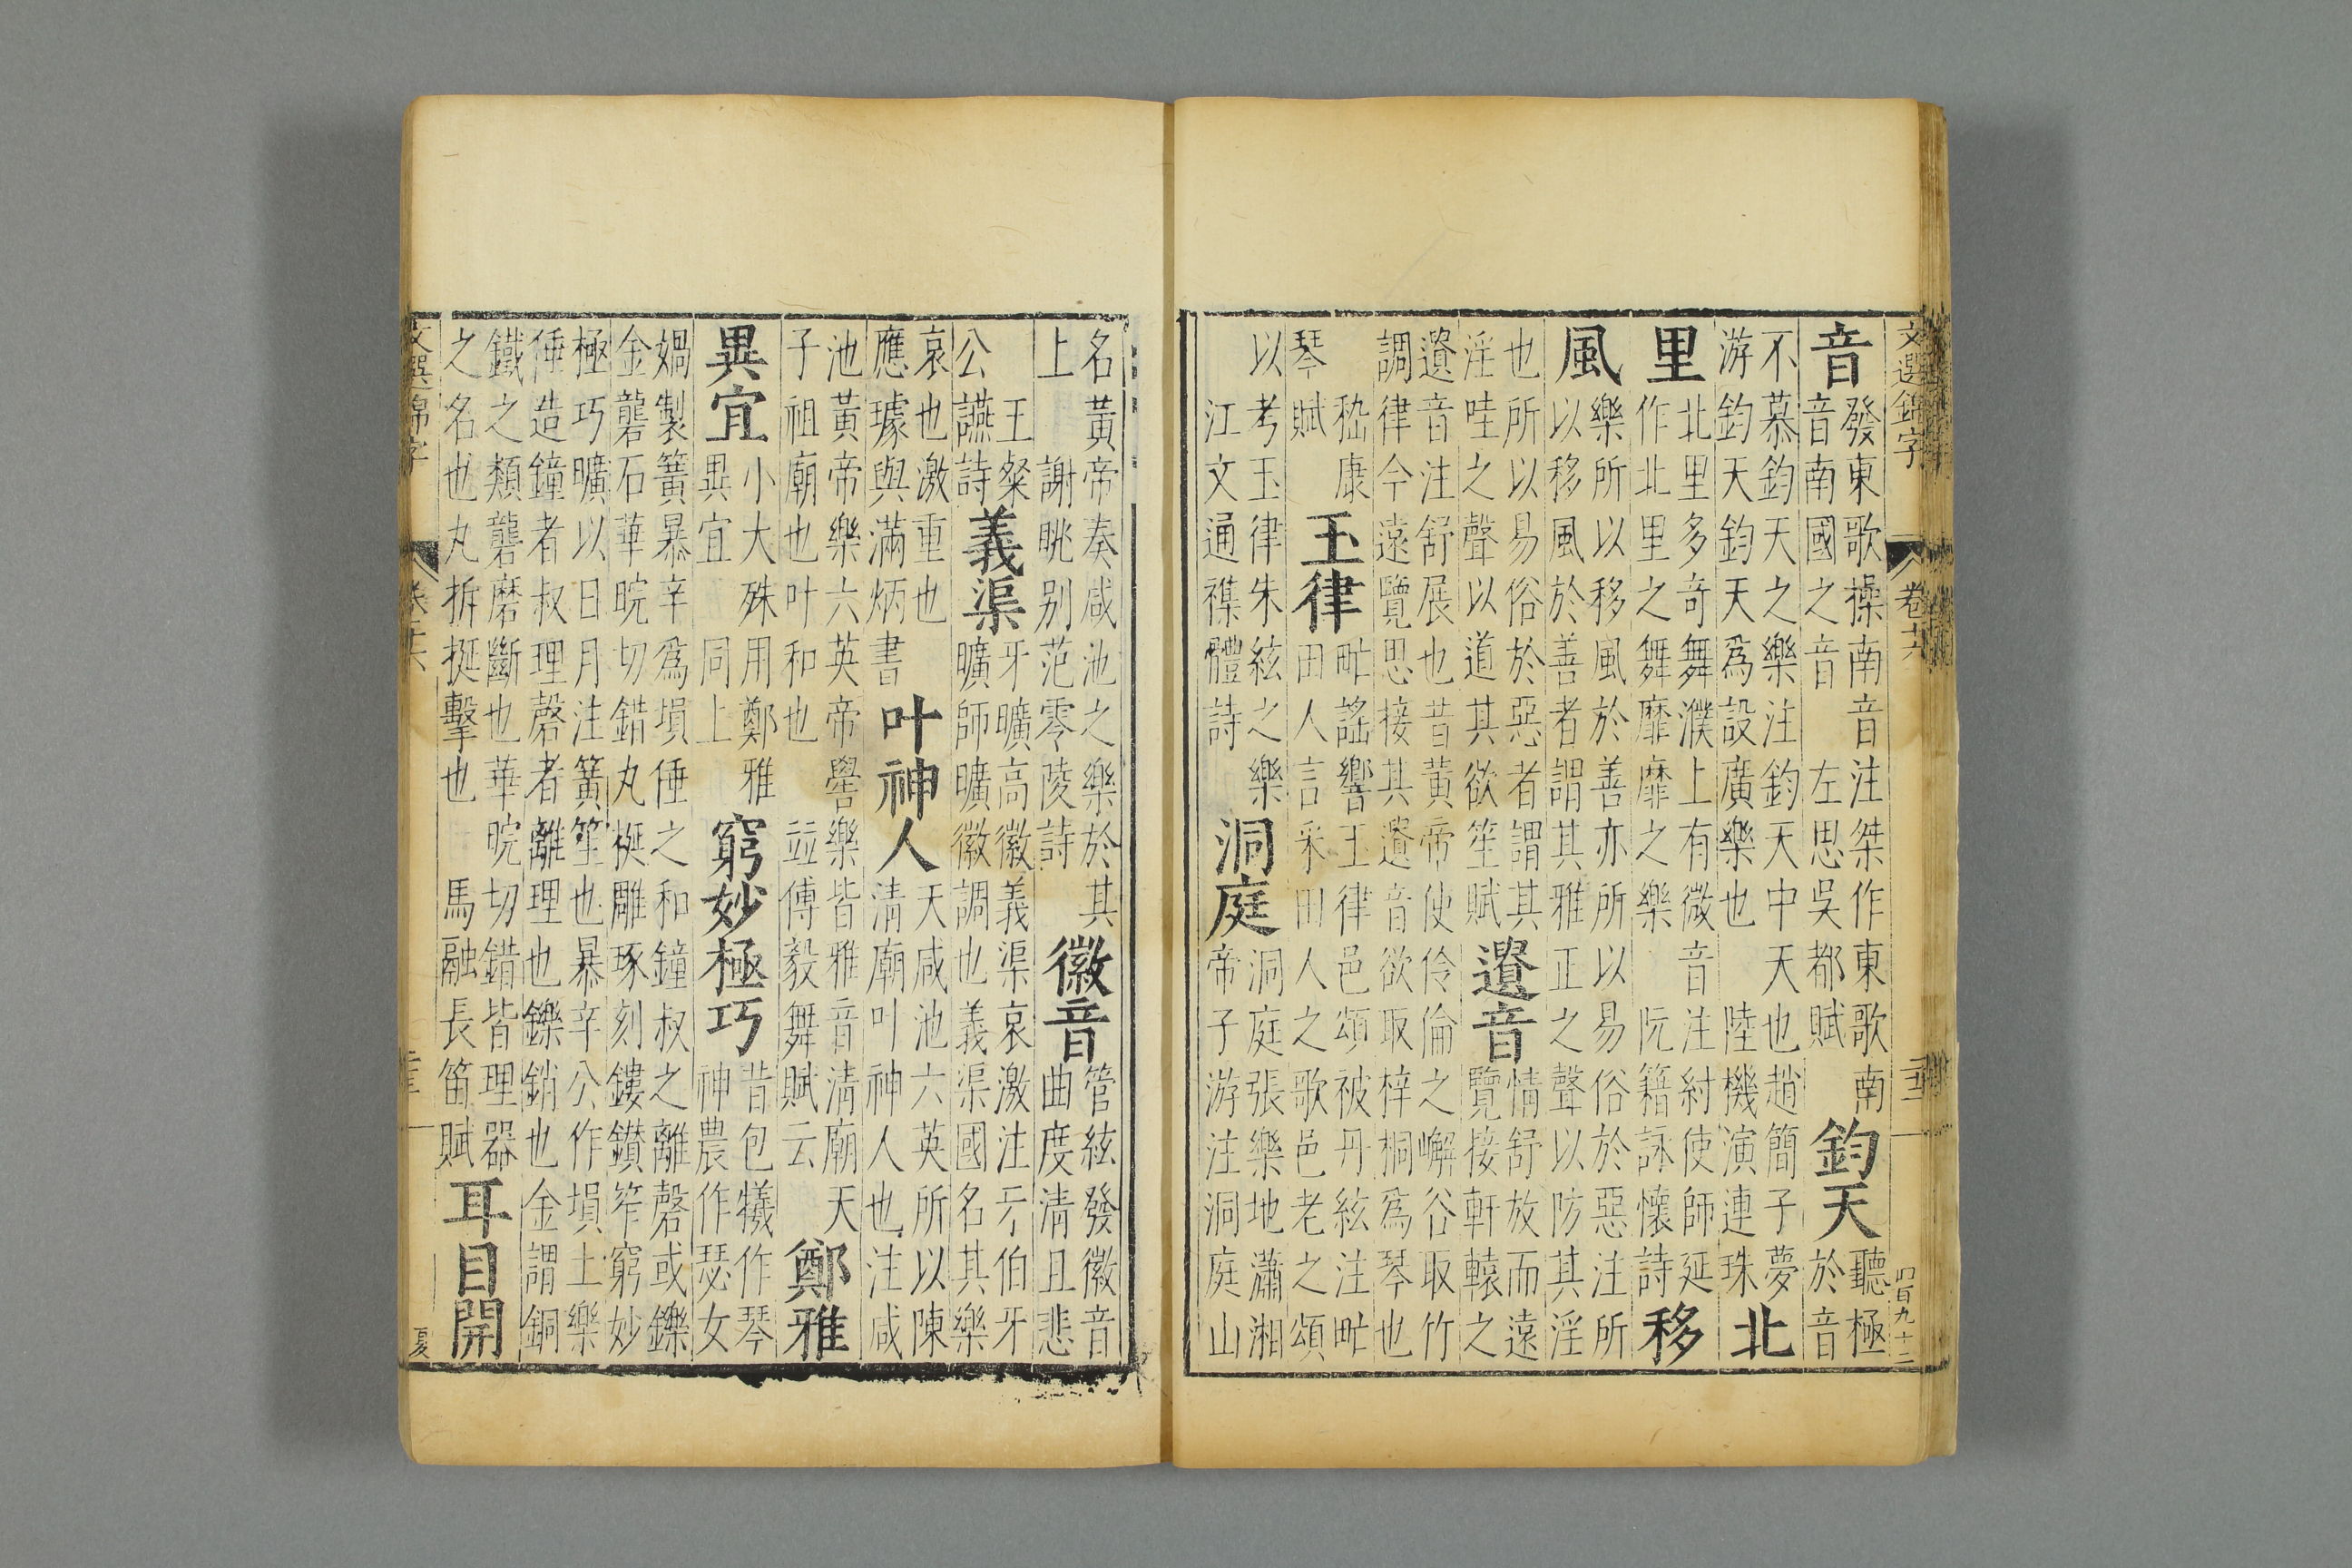 文選錦字 卷廿六
音發東歌操南音注桀作東歌南音南國之音 左思吳都賦鈞天聽極於音
不慕鈞天之樂注鈞天中天也趙簡子夢游鈞天鈞天爲設廣樂也 陸機演連珠北
里北里多奇舞濮上有微音注紂使師延作北里之舞靡靡之樂 阮籍詠懷詩移
風樂所以移風於善亦所以易俗於惡注所以移風於善者謂其雅正之聲以防其淫
也所以易俗於惡者謂其淫哇之聲以道其欲笙賦遺音情舒放而遠覽接軒轅之
遺音注舒展也昔黃帝使伶倫之嶰谷取竹調律今遠覽思接其遺音欲取梓桐爲琴也
嵇康琴賦玉律甿謠響玉律邑頌被丹絃注甿田人言采田人之歌邑老之頌
以考玉律朱絃之樂江文通襍體詩洞庭洞庭張樂地瀟湘帝子游注洞庭山
名黃帝奏咸池之樂於其上 謝眺別范零陵詩徽音管絃發徽音曲度清且悲
王粲公讌詩義渠牙曠高徽義渠哀激注牙伯牙曠師曠徽調也義渠國名其樂
哀也激重也應璩與滿炳書叶神人天咸池六英所以陳清廟叶神人也注咸
池黃帝樂六英帝嚳樂皆雅音清廟天子祖廟也叶和也 竝傅毅舞賦云鄭雅
異宜小大殊用鄭雅異宜 同上窮妙極巧昔包犧作琴神農作瑟女
媧製簧暴辛爲塤倕之和鐘叔之離磬或鑠金礱石華睆切錯丸梴雕琢刻鏤鑽笮窮妙
極巧曠以日月注簧笙也暴辛公作塤土樂倕造鐘者叔理磬者離理也鑠銷也金謂銅
鐵之類礱磨斷也華睆切錯皆理器之名也丸拆挻擊也 馬融長笛賦耳目開
文選錦字 夏